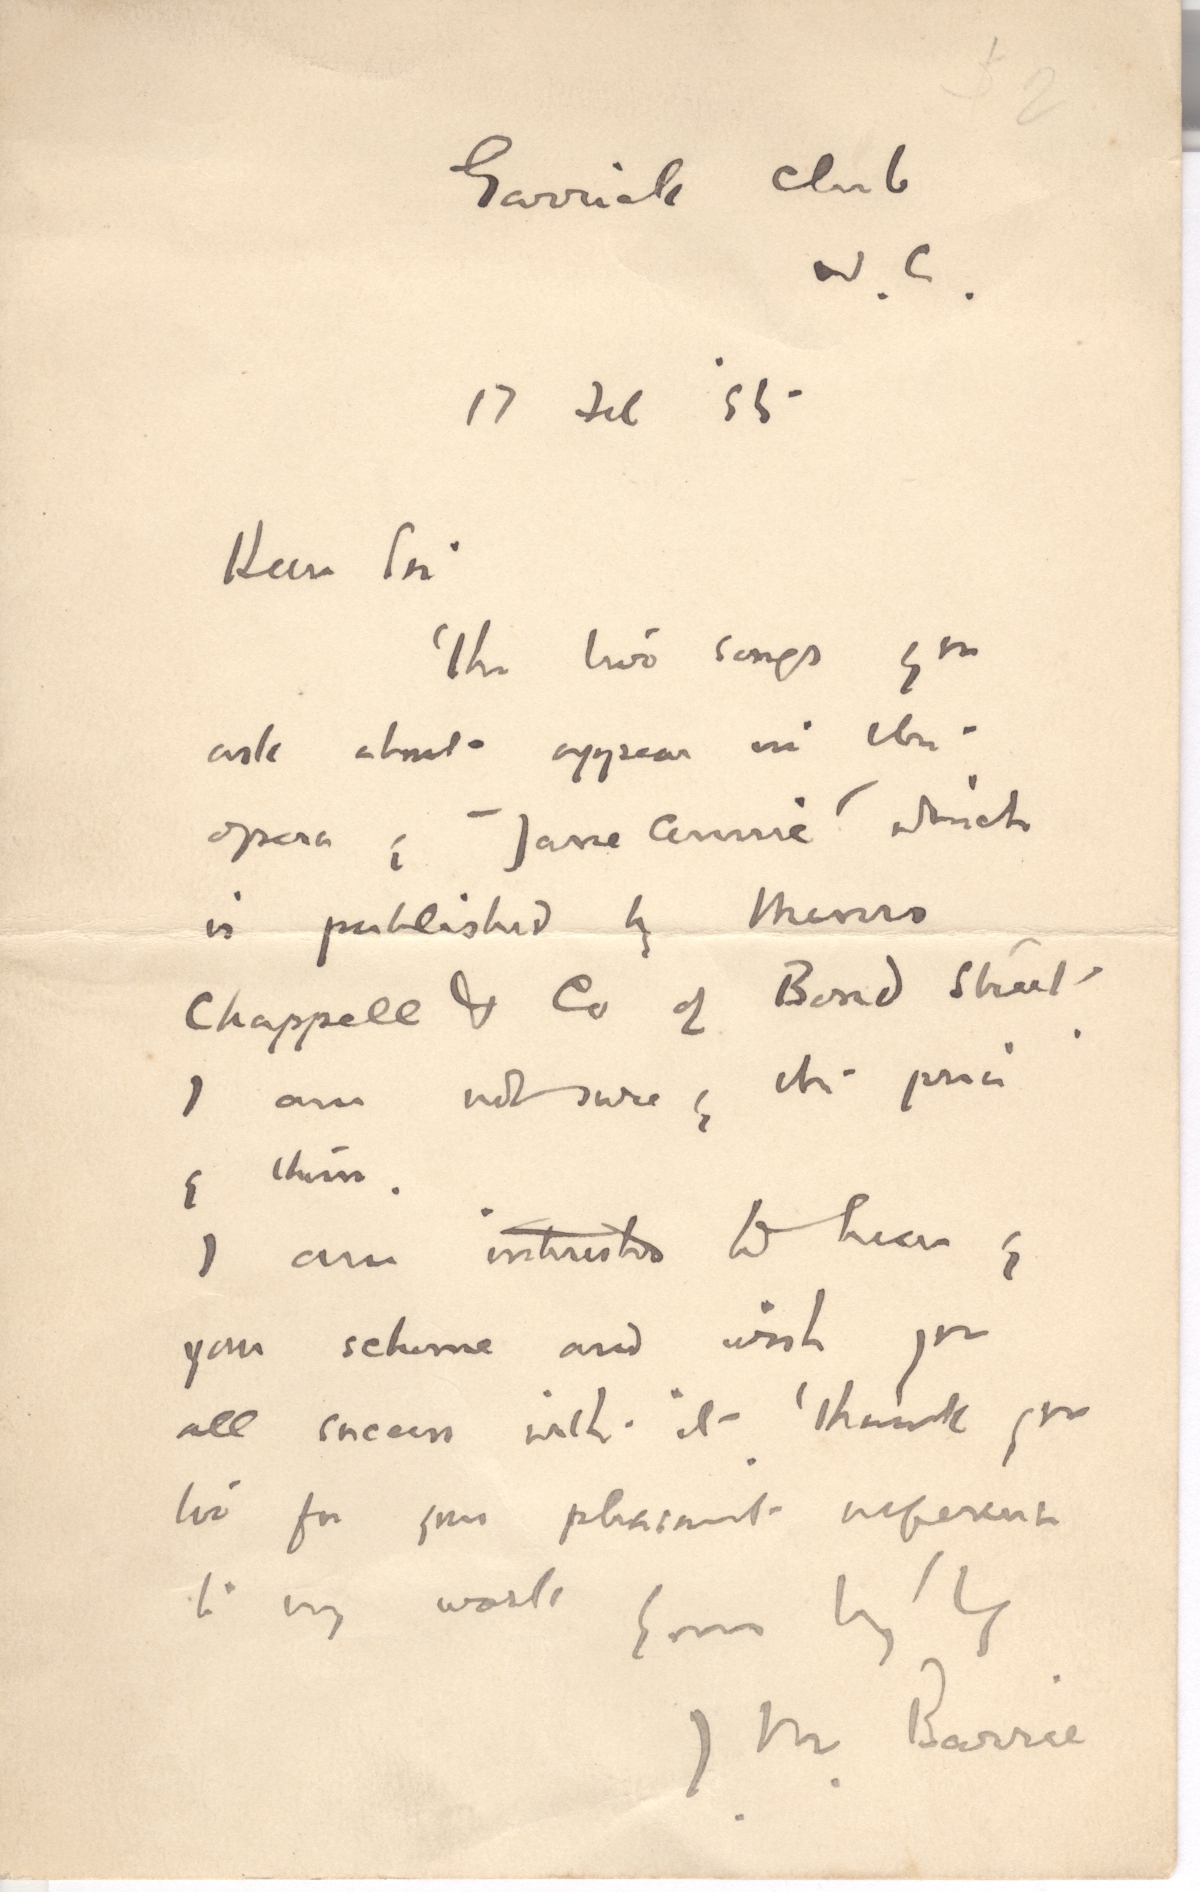 $2
Garrick Club
W.C.
17 Feb '95
Dear Sir
The two songs you
ask about appear in the
opera of "Jane Annie" which
is published by Messrs
Chappell & Co of Bond Street.
I am not sure of the price
of them.
I am interested to hear of
your scheme and wish you
all success with it. Thank you
too for your pleasant reference
to my work Yours
J. M. Barrie